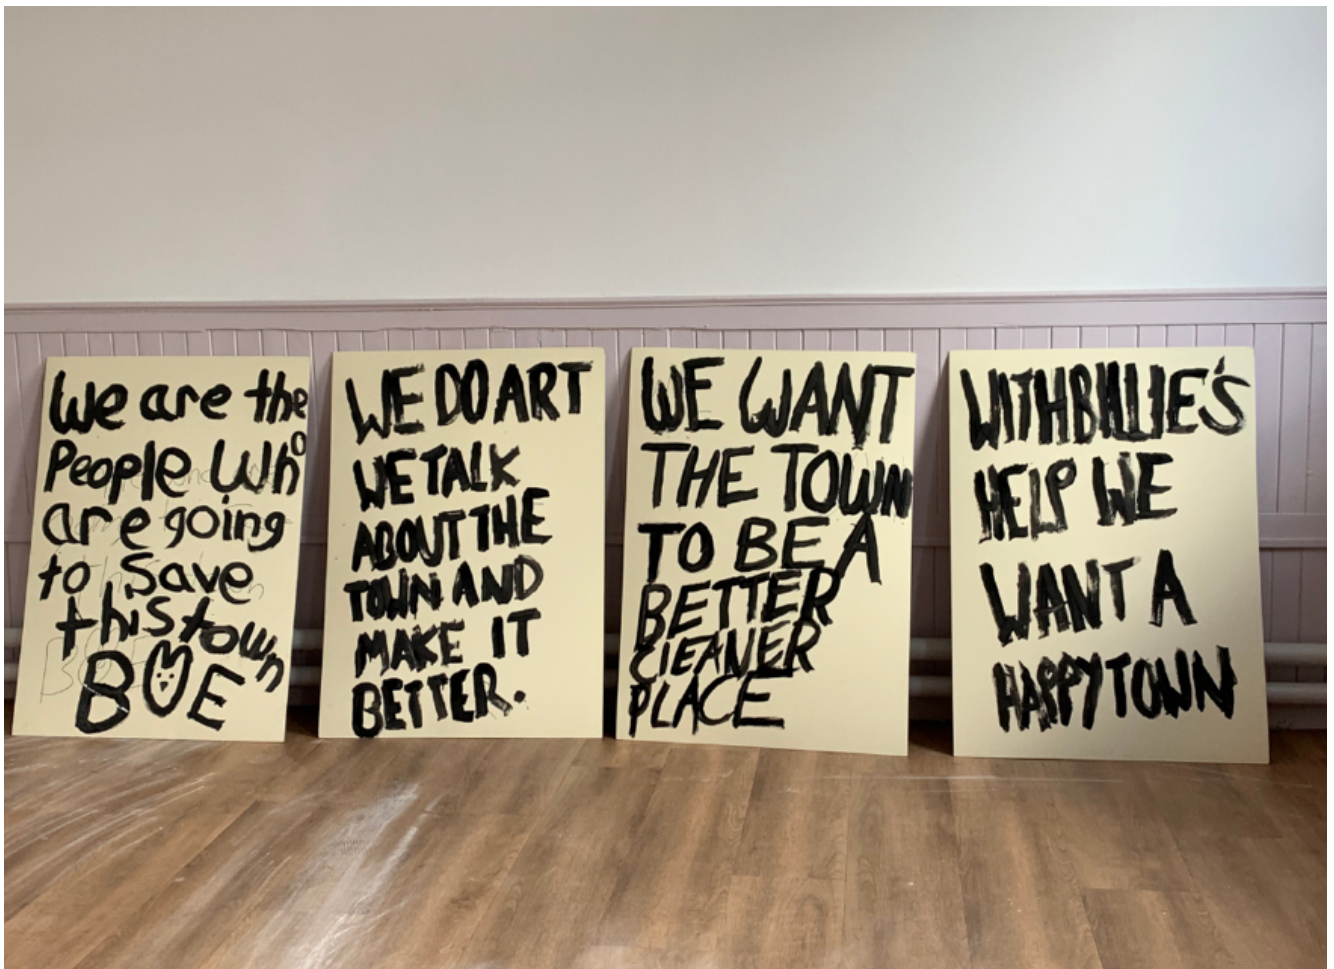 We are the
People Who
are going
to save
this town
BOE
WE DO ART
WE TALK
ABOUT THE
TOWN AND
MAKE IT
BETTER.
WE WANT
THE TOWN
TO BE A
BETTER
CLEANER
PLACE
WITH BILLIE'S
HELP WE
WANT A
HAPPY TOWN